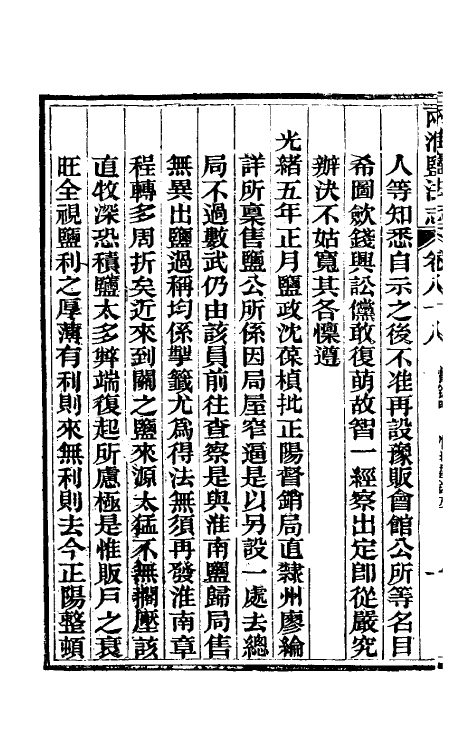 兩淮鹽法志 卷八十八
人等知悉自示之後不准再設豫販會館公所等名目
希圖斂錢興訟儻敢復萌故智一經察出定卽從嚴究
辦決不姑寬其各懍遵
光緒五年正月鹽政沈葆楨批正陽督銷局直隸州廖綸
詳所裏售鹽公所係因局屋窄逼是以另設一處去總
局不過數武仍由該員前往查察是與淮南鹽歸局售
無異出鹽過稱均係掣籤尤爲得法無須再發淮南章
程轉多周折矣近來到關之鹽來源太猛不無擱壓該
直牧深恐積鹽太多弊端復起所慮極是惟販戶之衰
旺全視鹽利之厚薄有利則來無利則去今正陽整頓